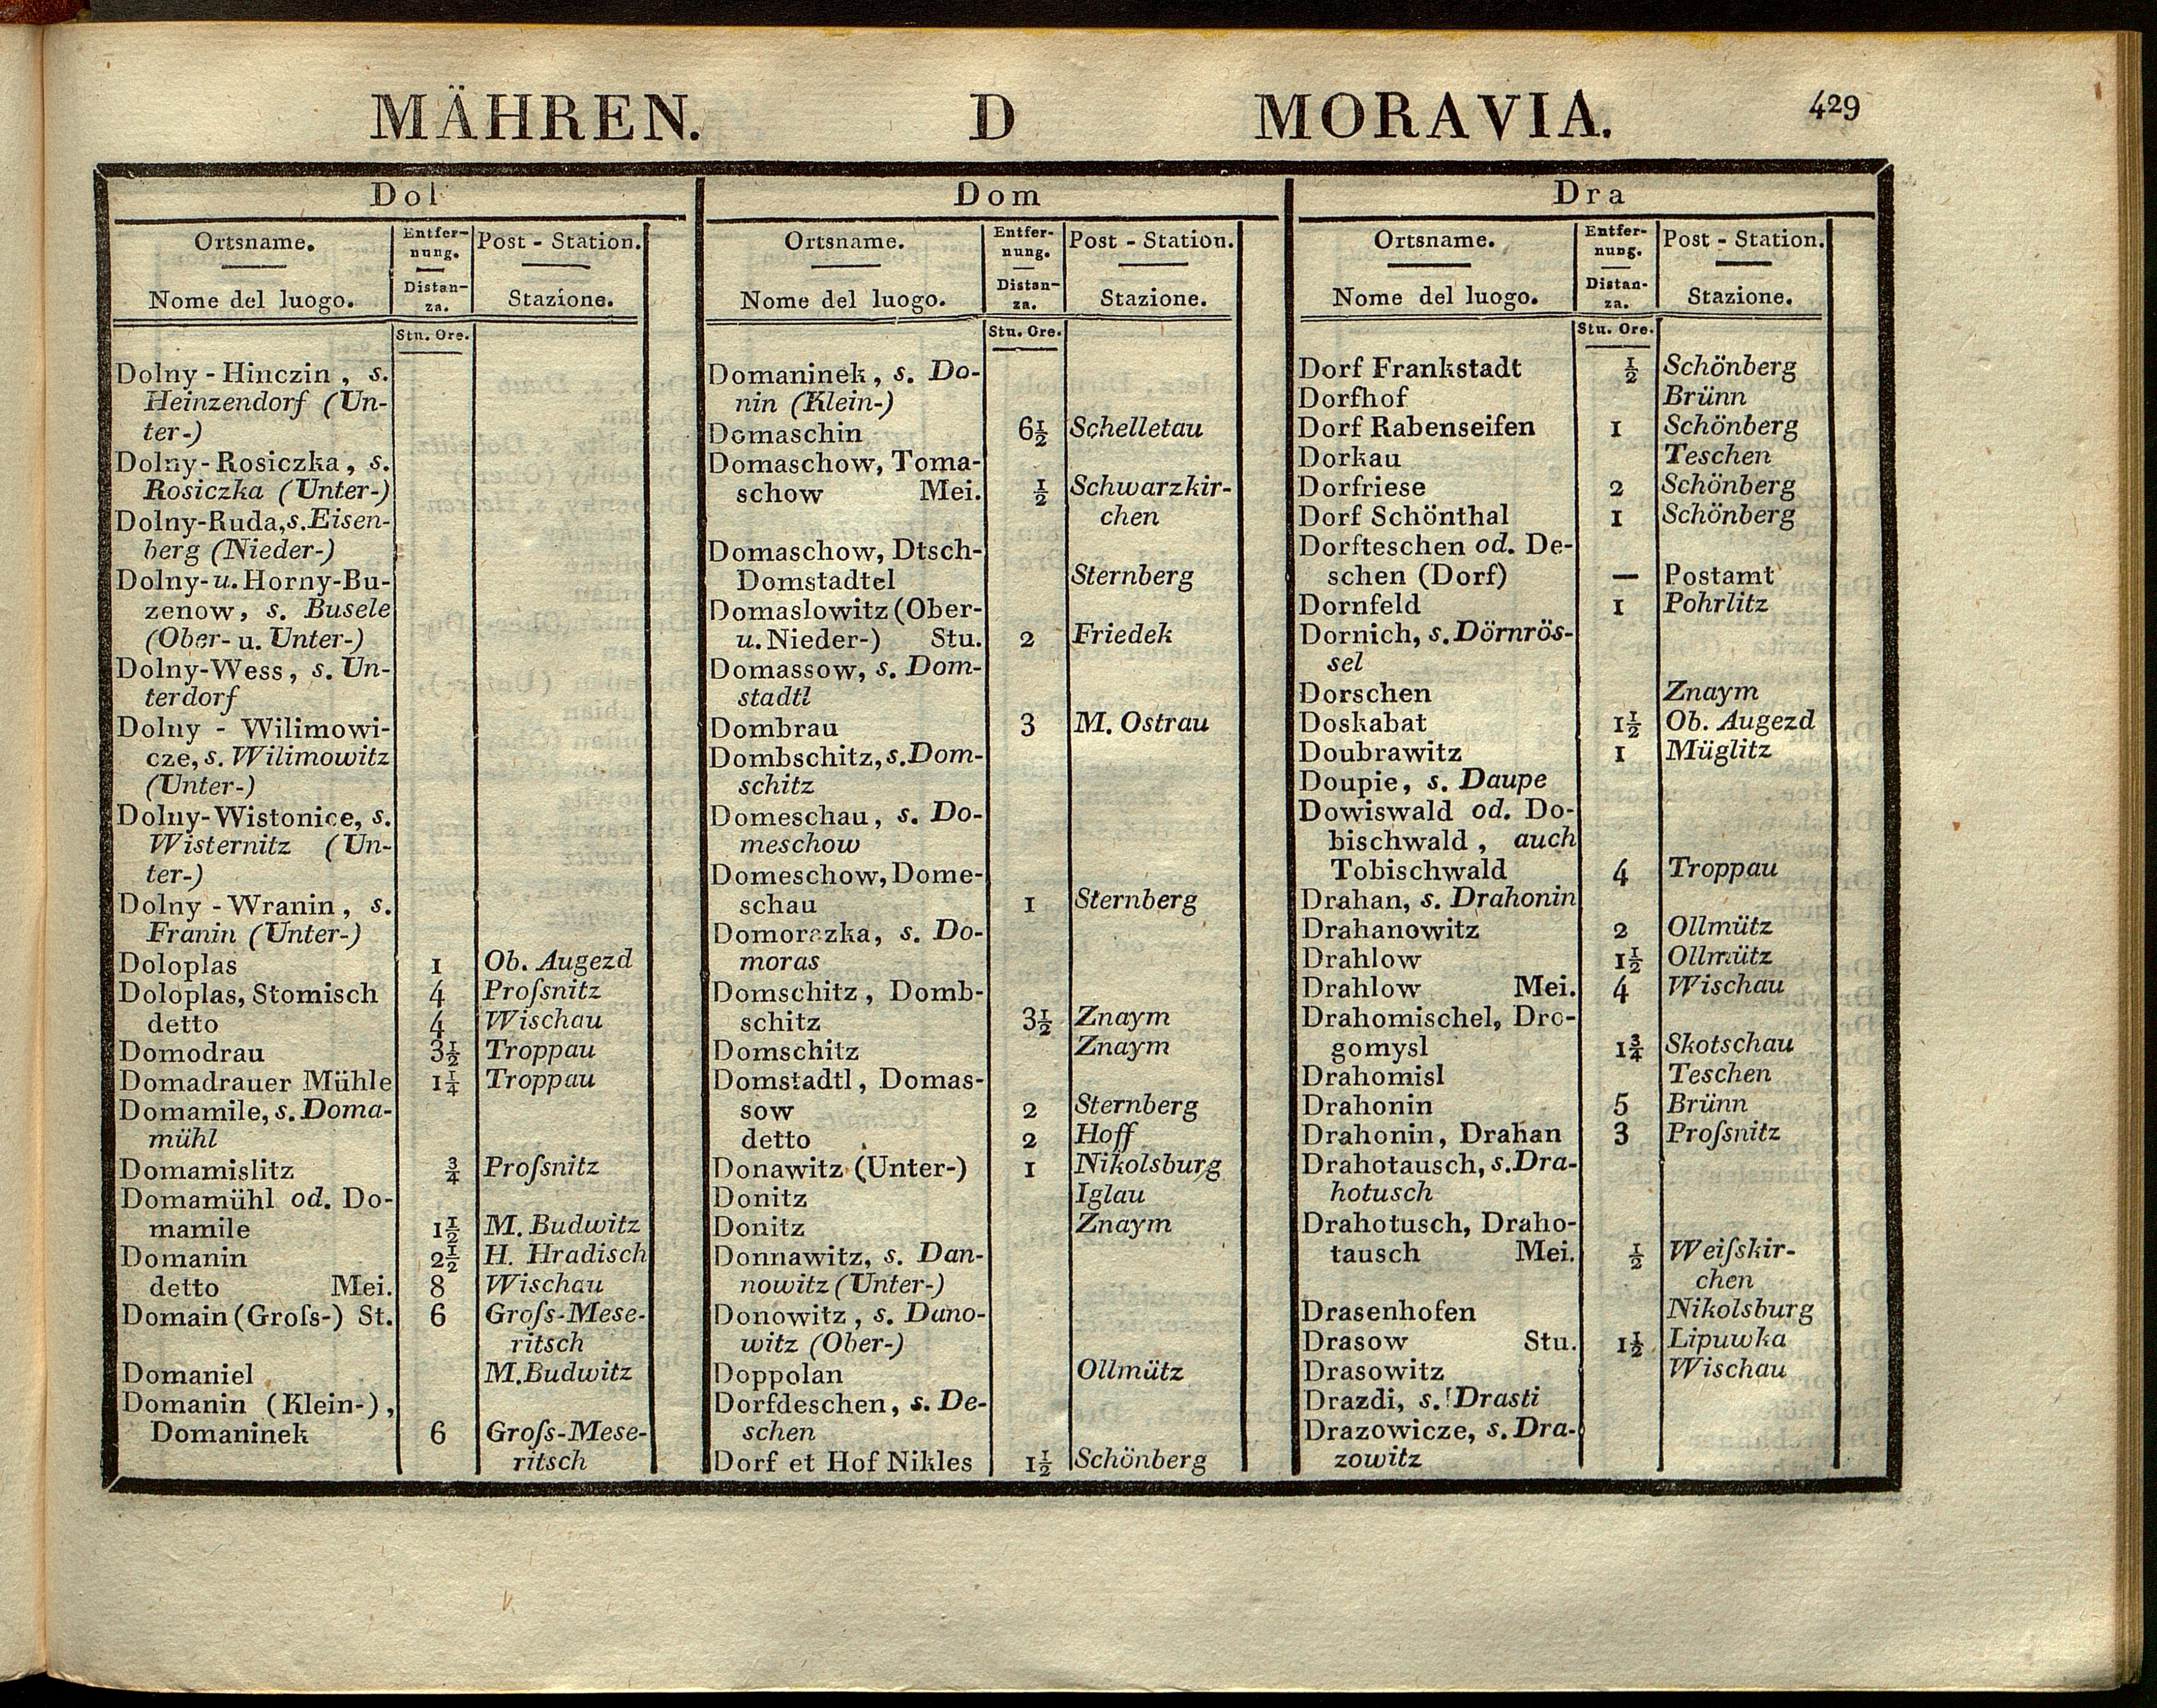 MÄHREN. D MORAVIA. 429
Dol
Ortsname. Entfer- Post - Station.
nung.
Nome del luogo. Distan- Stazione.
za.
Stu. Ore.
Dolny - Hinczin, s.
Heinzendorf (Un-
ter-)
Dolny-Rosiczka, s.
Rosiczka (Unter-)
Dolny-Ruda, s. Eisen-
berg (Nieder-)
Dolny- u. Horny-Bu-
zenow, s. Busele
(Ober- u. Unter-)
Dolny-Wess, s. Un-
terdorf
Dolny - Wilimowi-
cze, s. Wilimowitz
(Unter-)
Dolny-Wistonice, s.
Wisternitz (Un-
ter-)
Dolny - Wranin, s.
Franin (Unter-)
Doloplas 1 Ob. Augezd
Doloplas, Stomisch 4 Proſsnitz
detto 4 Wischau
Domodrau 3½ Troppau
Domadrauer Mühle 1¼ Troppau
Domamile, s. Doma-
mühl
Domamislitz ¾ Proſsnitz
Domamühl od. Do-
mamile 1½ M. Budwitz
Domanin 2½ H. Hradisch
detto Mei. 8 Wischau
Domain (Groſs-) St. 6 Groſs-Mese-
ritsch
Domaniel M. Budwitz
Domanin (Klein-),
Domaninek 6 Groſs-Mese-
ritsch
Dom
Ortsname. Entfer- Post - Station.
nung.
Nome del luogo. Distan- Stazione.
za.
Stu. Ore.
Domaninek, s. Do-
nin (Klein-)
Domaschin 6½ Schelletau
Domaschow, Toma-
schow Mei. ½ Schwarzkir-
chen
Domaschow, Dtsch-
Domstadtel Sternberg
Domaslowitz (Ober-
u. Nieder-) Stu. 2 Friedek
Domassow, s. Dom-
stadtl
Dombrau 3 M. Ostrau
Dombschitz, s. Dom-
schitz
Domeschau, s. Do-
meschow
Domeschow, Dome-
schau 1 Sternberg
Domorazka, s. Do-
moras
Domschitz, Domb-
schitz 3½ Znaym
Domschitz Znaym
Domstadtl, Domas-
sow 2 Sternberg
detto 2 Hoff
Donawitz (Unter-) 1 Nikolsburg
Donitz Iglau
Donitz Znaym
Donnawitz, s. Dan-
nowitz (Unter-)
Donowitz, s. Dano-
witz (Ober-)
Doppolan Ollmütz
Dorfdeschen, s. De-
schen
Dorf et Hof Nikles 1½ Schönberg
Dra
Ortsname. Entfer- Post - Station.
nung.
Nome del luogo. Distan- Stazione.
za.
Stu. Ore.
Dorf Frankstadt ½ Schönberg
Dorfhof Brünn
Dorf Rabenseifen 1 Schönberg
Dorkau Teschen
Dorfriese 2 Schönberg
Dorf Schönthal 1 Schönberg
Dorfteschen od. De-
schen (Dorf) — Postamt
Dornfeld 1 Pohrlitz
Dornich, s. Dörnrös-
sel
Dorschen Znaym
Doskabat 1½ Ob. Augezd
Doubrawitz 1 Müglitz
Doupie, s. Daupe
Dowiswald od. Do-
bischwald, auch
Tobischwald 4 Troppau
Drahan, s. Drahonin
Drahanowitz 2 Ollmütz
Drahlow 1½ Ollmütz
Drahlow Mei. 4 Wischau
Drahomischel, Dro-
gomysl 1¾ Skotschau
Drahomisl Teschen
Drahonin 5 Brünn
Drahonin, Drahan 3 Proſsnitz
Drahotausch, s. Dra-
hotusch
Drahotusch, Draho-
tausch Mei. ½ Weiſskir-
chen
Drasenhofen Nikolsburg
Drasow Stu. 1½ Lipuwka
Drasowitz Wischau
Drazdi, s. Drasti
Drazowicze, s. Dra-
zowitz